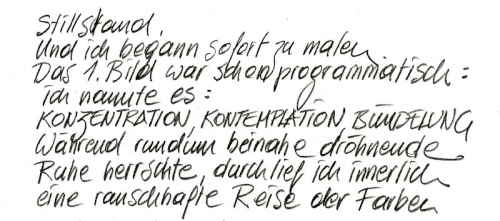 Stillstand.
Und ich begann sofort zu malen.
Das 1. Bild war schon programmatisch:
ich nannte es:
KONZENTRATION, KONTEMPLATION BÜNDELUNG
Während rundum beinahe dröhnende
Ruhe herrschte, durchlief ich innerlich
eine rauschhafte Reise der Farben